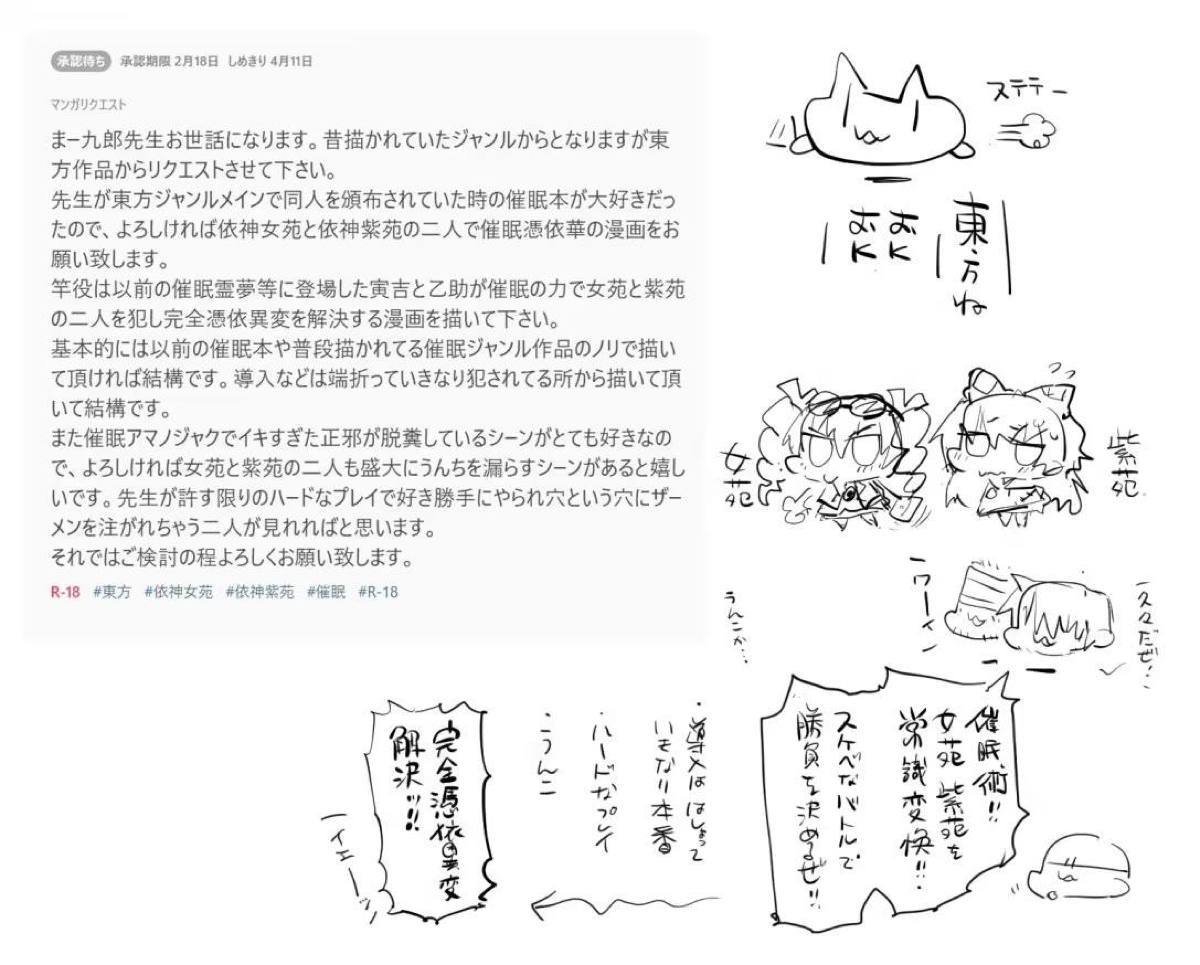 承認待ち 承認期限 2月18日 しめきり 4月11日
マンガリクエスト
まー九郎先生お世話になります。昔描かれていたジャンルからとなりますが東
方作品からリクエストさせて下さい。
先生が東方ジャンルメインで同人を頒布されていた時の催眠本が大好きだっ
たので、よろしければ依神女苑と依神紫苑の二人で催眠憑依華の漫画をお
願い致します。
竿役は以前の催眠霊夢等に登場した寅吉と乙助が催眠の力で女苑と紫苑
の二人を犯し完全憑依異変を解決する漫画を描いて下さい。
基本的には以前の催眠本や普段描かれてる催眠ジャンル作品のノリで描い
て頂ければ結構です。導入などは端折っていきなり犯されてる所から描いて頂
いて結構です。
また催眠アマノジャクでイキすぎた正邪が脱糞しているシーンがとても好きなの
で、よろしければ女苑と紫苑の二人も盛大にうんちを漏らすシーンがあると嬉し
いです。先生が許す限りのハードなプレイで好き勝手にやられ穴という穴にザー
メンを注がれちゃう二人が見れればと思います。
それではご検討の程よろしくお願い致します。
R-18 #東方 #依神女苑 #依神紫苑 #催眠 #R-18
ステテー
東方ね
OK
OK
紫苑
女苑
久々だぜ!
ワーイ
うんこか…
催眠術!!
女苑 紫苑を
常識変換!!
スケベなバトルで
勝負を決めるぜ!!
・導入ははしょって
いきなり本番
・ハードなプレイ
・うんこ
完全憑依異変
解決ッ!!
イエーッ